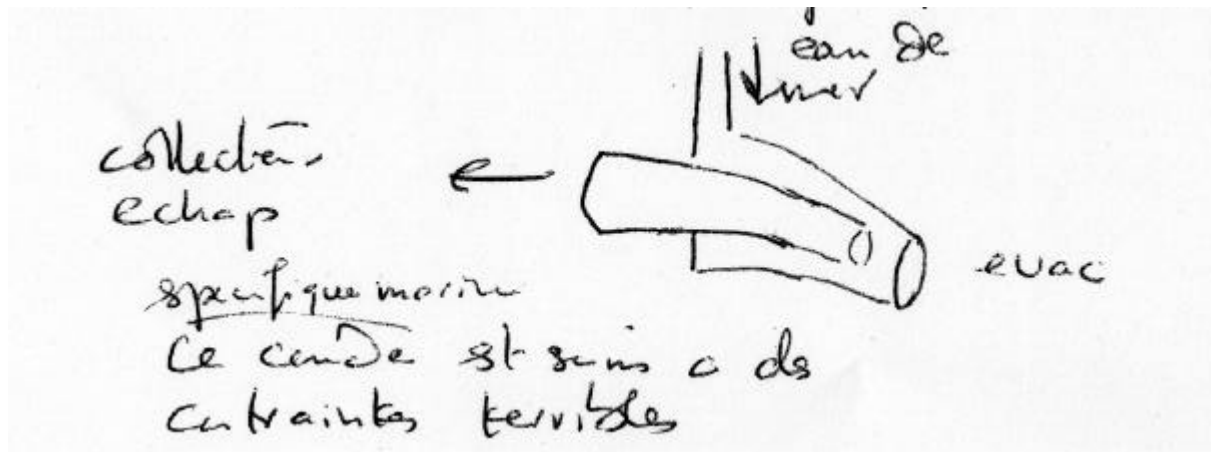 eau de
mer
collecteur
echap
evac
specifique marine
Ce coude est soumis a des
contraintes terribles